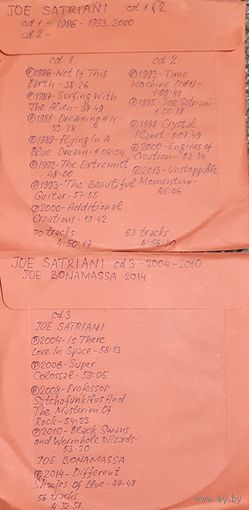 JOE SATRIANI cd 1 & 2
cd 1 - 1986 - 1993, 2000
cd 2 -
cd 1
1986-Not Of This
Earth - 38:26
1987-Surfing With
The Alien - 38:49
1988-Dreaming #11-
23:28
1989-Flying In A
Blue Dream - 1:04:54
1992-The Extremist
48:00
1993-The Beautiful
Guitar - 57:55
2000-Additional
Creations - 19:42
70 tracks
4:50:17
cd 2
1993-Time
Machine (cd1) -
1:09:41
1995-Joe Satriani-
1:00:18
1998-Crystal
Planet - 1:07:49
2000-Engines of
Creation - 53:34
2013-Unstoppable
Momentum -
48:06
63 tracks
JOE SATRIANI cd 3 - 2004-2010
JOE BONAMASSA 2014
cd 3
JOE SATRIANI
2004-Is There
Love In Space - 58:13
2006-Super
Colossal - 53:05
2008-Professor
Satchafunkilus And
The Musterion Of
Rock - 54:23
2010-Black Swans
and Wormhole Wizards-
53:20
JOE BONAMASSA
2014-Different
Shades of Blue - 47:48
56 tracks
4:32:51
www.ay.by